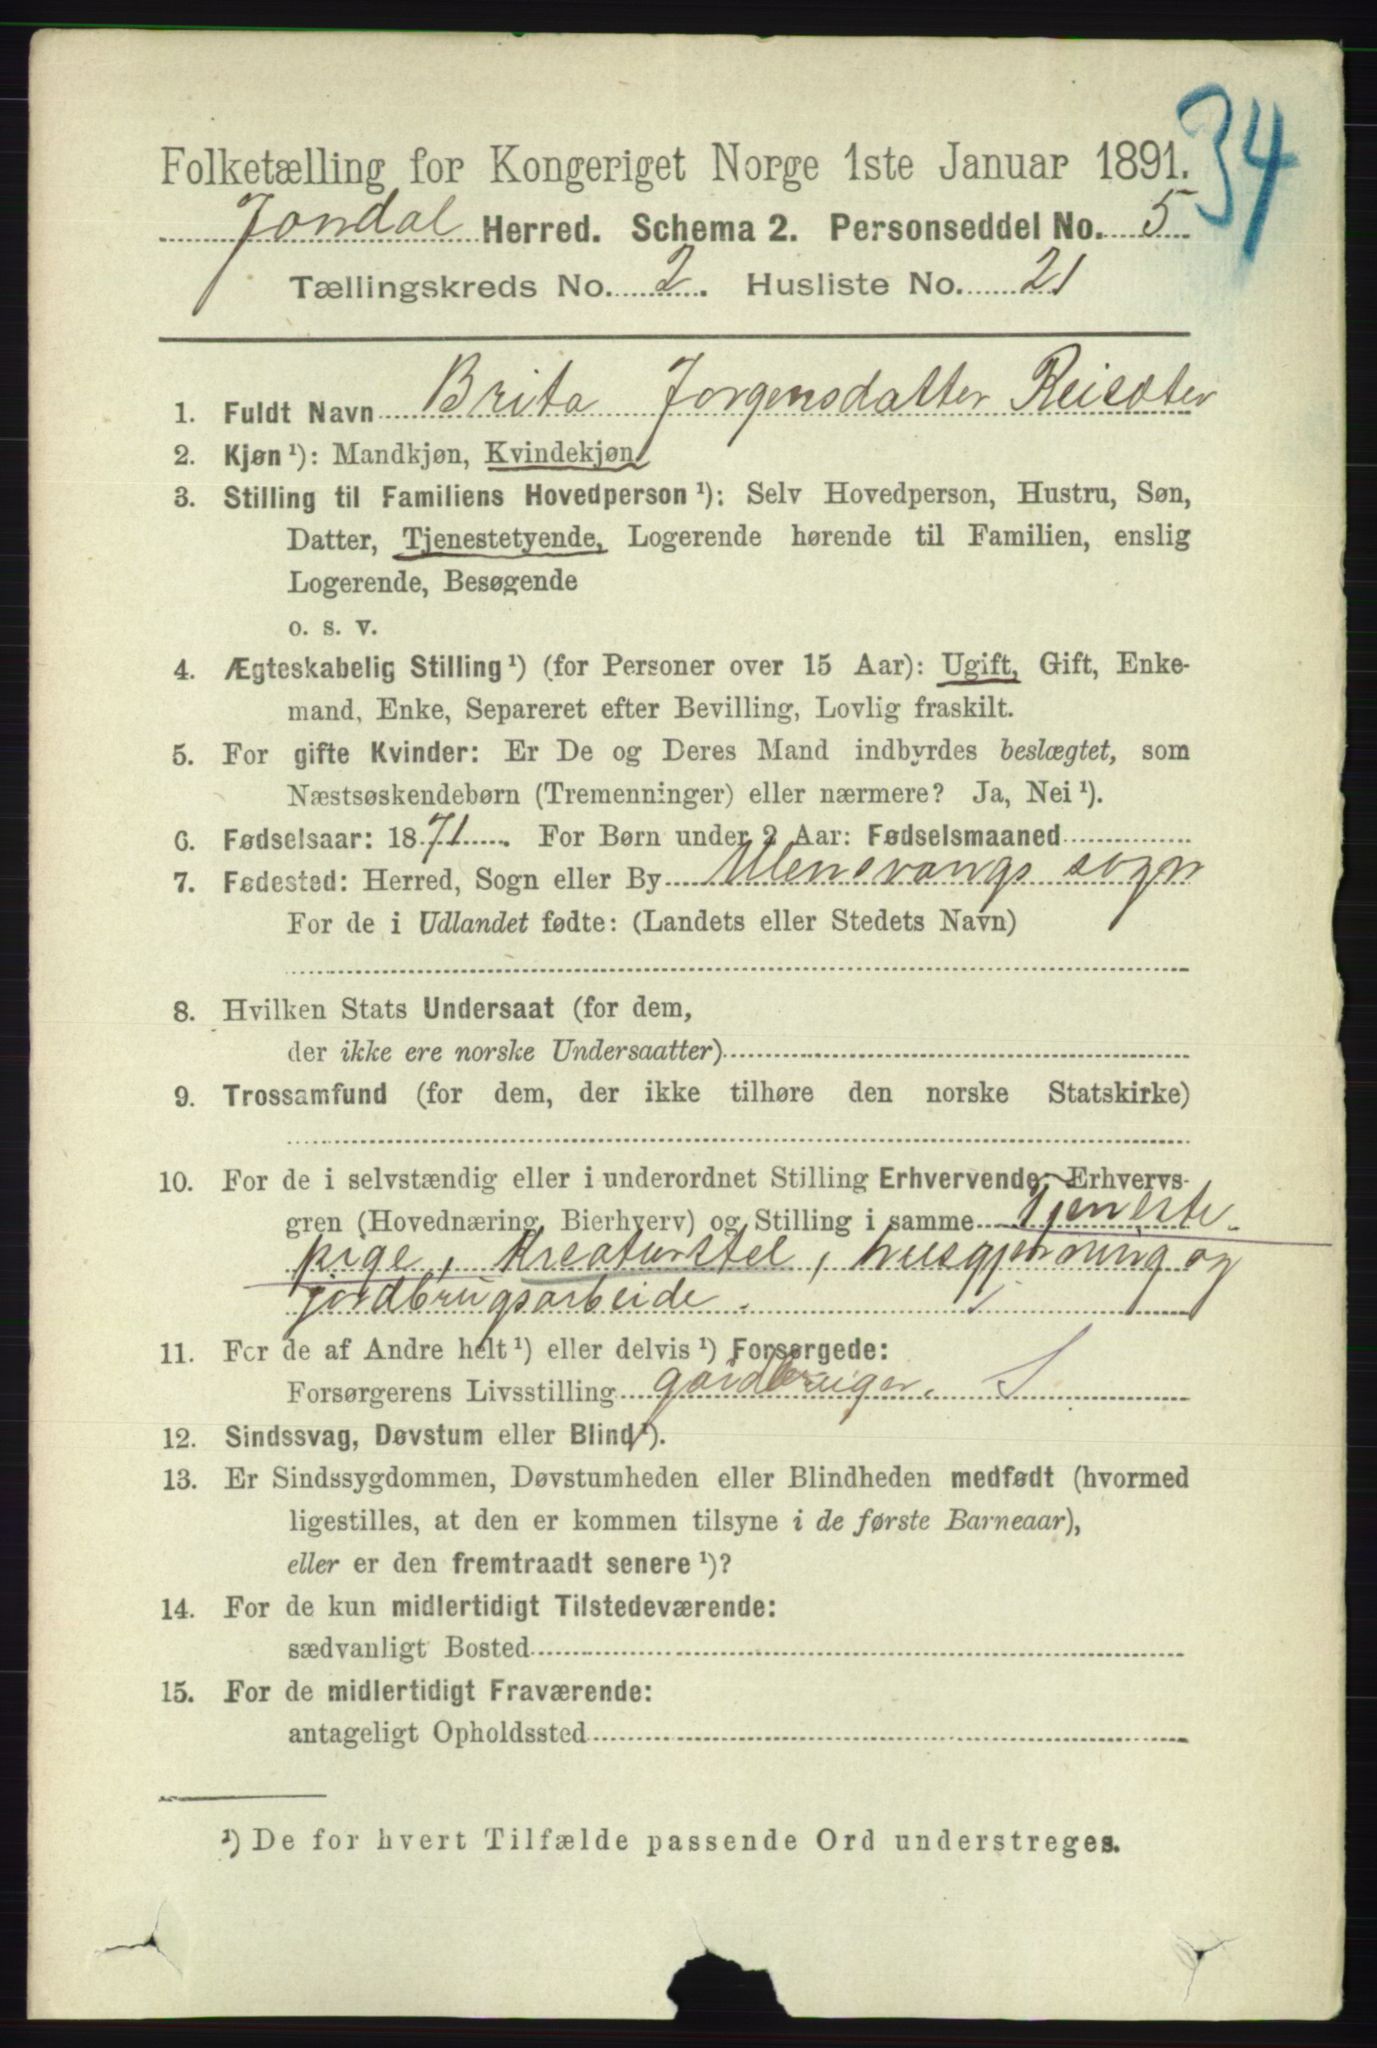 34
Folketælling for Kongeriget Norge 1ste Januar 1891.
Jondal Herred. Schema 2. Personseddel No. 5
Tællingskreds No. 2. Husliste No. 21
1. Fuldt Navn Brita Jørgensdatter Reisæter
2. Kjøn ¹): Mandkjøn, Kvindekjøn
3. Stilling til Familiens Hovedperson ¹): Selv Hovedperson, Hustru, Søn,
Datter, Tjenestetyende, Logerende hørende til Familien, enslig
Logerende, Besøgende
o. s. v.
4. Ægteskabelig Stilling ¹) (for Personer over 15 Aar): Ugift, Gift, Enke-
mand, Enke, Separeret efter Bevilling, Lovlig fraskilt.
5. For gifte Kvinder: Er De og Deres Mand indbyrdes beslægtet, som
Næstsøskendebørn (Tremenninger) eller nærmere? Ja, Nei ¹).
6. Fødselsaar: 1871. For Børn under 2 Aar: Fødselsmaaned
7. Fødested: Herred, Sogn eller By Ulensvangs sogn
For de i Udlandet fødte: (Landets eller Stedets Navn)
8. Hvilken Stats Undersaat (for dem,
der ikke ere norske Undersaatter)
9. Trossamfund (for dem, der ikke tilhøre den norske Statskirke)
10. For de i selvstændig eller i underordnet Stilling Erhvervende: Erhvervs-
gren (Hovednæring, Bierhverv) og Stilling i samme Tjeneste-
pige, Kreaturstel, husgjerning og
jordbrugsarbeide.
11. For de af Andre helt ¹) eller delvis ¹) Forsørgede:
Forsørgerens Livsstilling gaardbruger. S
12. Sindssvag, Døvstum eller Blind ¹).
13. Er Sindssygdommen, Døvstumheden eller Blindheden medfødt (hvormed
ligestilles, at den er kommen tilsyne i de første Barneaar),
eller er den fremtraadt senere ¹)?
14. For de kun midlertidigt Tilstedeværende:
sædvanligt Bosted
15. For de midlertidigt Fraværende:
antageligt Opholdssted
¹) De for hvert Tilfælde passende Ord understreges.